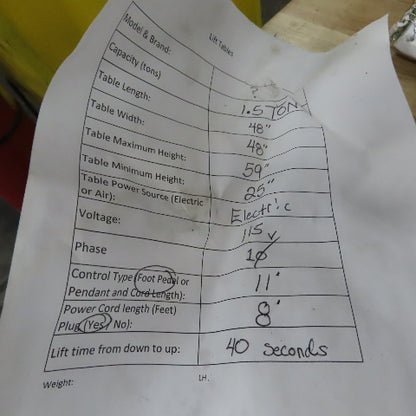 Lift Tables
Model & Brand: ?
Capacity (tons) 1.5 TON
Table Length: 48"
Table Width: 48"
Table Maximum Height: 59"
Table Minimum Height: 25"
Table Power Source (Electric
or Air): Electric
Voltage: 115 V
Phase 1Ø
Control Type (Foot Pedal or
Pendant and Cord Length): 11'
Power Cord length (Feet)
Plug (Yes / No): 8'
Lift time from down to up: 40 seconds
Weight: LH.